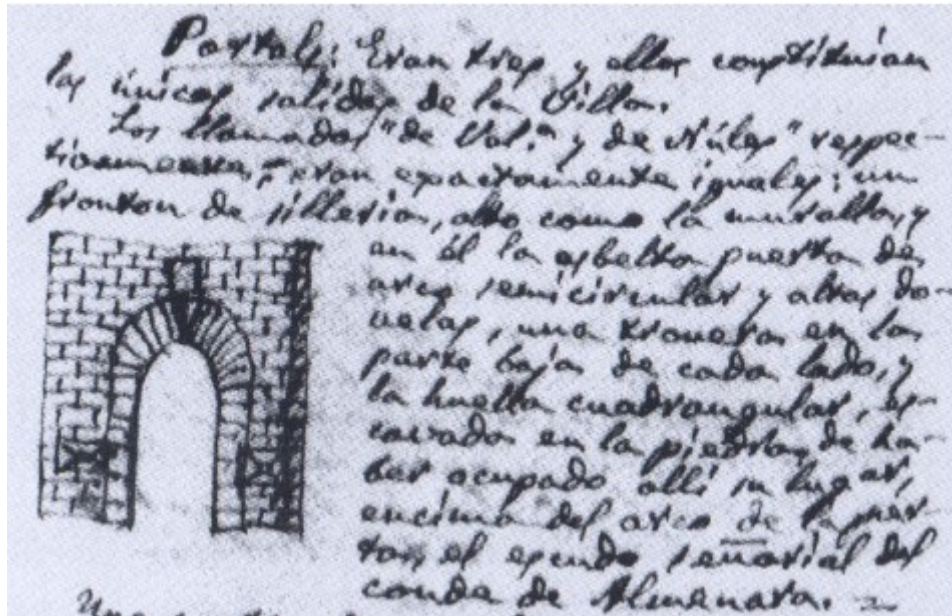 Portals: Eran tres y ellos constituían
las únicas salidas de la Villa.
Los llamados "de Val." y de Nules" respec-
tivamente, eran exactamente iguales: un
frontón de sillería, alto como la muralla, y
en él la esbelta puerta de
arco semicircular y altas do-
velas, una tronera en la
parte baja de cada lado, y
la huella cuadrangular, es-
cavada en la piedra, de ha-
ber ocupado allí su lugar,
encima del arco de la puer-
ta, el escudo señorial del
conde de Almenara. -